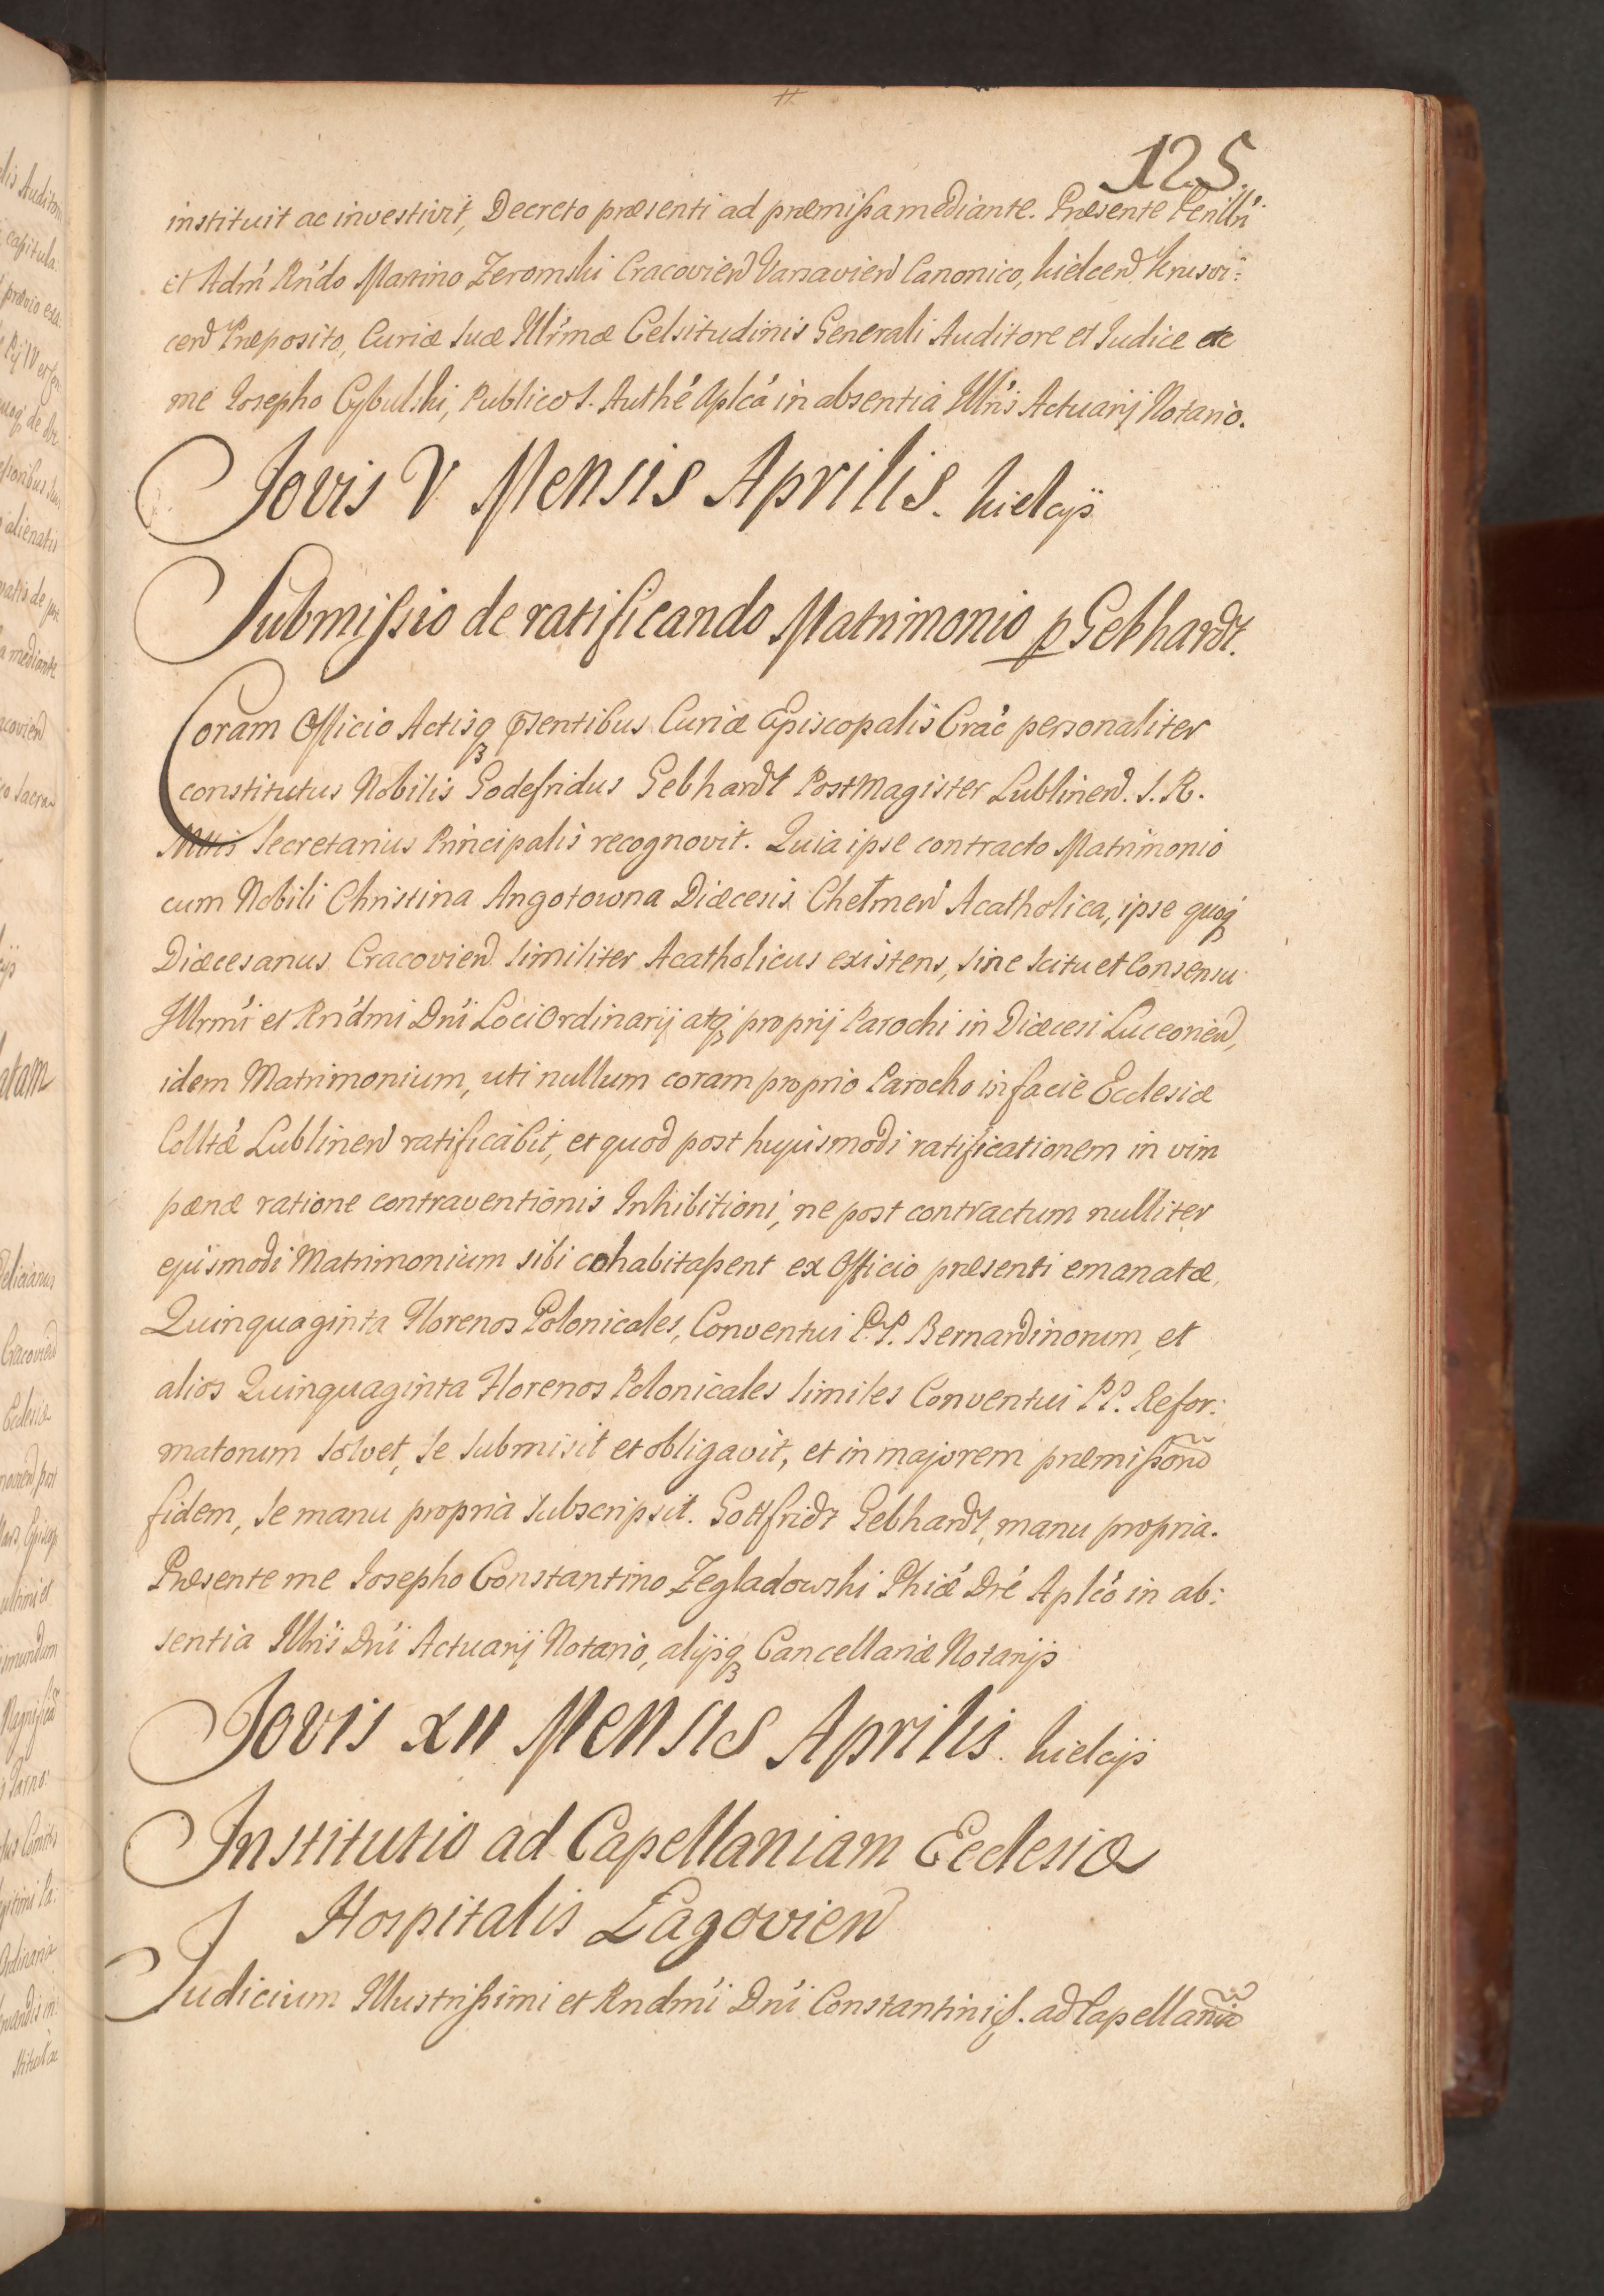 125
instituit ac investivit, Decreto præsenti ad præmissa mediante. Præsente Perillri
et Adm' Rn'do Martino Zeromski Cracovien Varsavien Canonico, Kielcen Krusvi:
cen Præposito, Curiæ Suæ Illr'mæ Celsitudinis Generali Auditore et Judice etc
me Josepho Cybulski, Publico S. Auth'e Aplc'a in absentia Illris Actuarij Notario.
Jovis V Mensis Aprilis. Kielcijs
Submissio de ratificando Matrimonio p Gebhardt.
Coram Officio Actisq præsentibus Curiæ Episcopalis Crac' personaliter
constitutus Nobilis Godefridus Gebhardt PostMagister Lublinen. S. R.
Mttis Secretarius Principalis recognovit. Quia ipse contracto Matrimonio
cum Nobili Christina Angotowna Diæcesis Chełmen Acatholica, ipse quoq
Diæcesanus Cracovien similiter Acatholicus existens, sine scitu et Consensu
Illrm'i et Rnd'mi Dn'i Loci Ordinarij atq proprij Parochi in Diæcesi Luceorien,
idem Matrimonium, uti nullum coram proprio Parocho in facie Ecclesiæ
Collt'æ Lublinen ratificabit, et quod post hujusmodi ratificationem in vim
pænæ ratione contraventionis Inhibitioni, ne post contractum nulliter
ejusmodi Matrimonium sibi cohabitassent ex Officio præsenti emanatæ,
Quinquaginta Florenos Polonicales, Conventui P.P. Bernardinorum, et
alios Quinquaginta Florenos Polonicales similes Conventui PP. Refor:
matorum solvet, se submisit et obligavit, et in majorem præmissorum
fidem, se manu propria subscripsit. Gottfridt Gebhardt, manu propria.
Præsente me Josepho Constantino Zegladowski Phi'æ Dr'e Aplc'o in ab:
sentia Illris Dn'i Actuarij Notario, alijsq Cancellariæ Notarijs
Jovis XII Mensis Aprilis. Kielcijs
Institutio ad Capellaniam Ecclesiæ
Hospitalis Łagovien
Judicium Illustrissimi et Rndm'i Dn'i Constantini S. ad Capellaniã